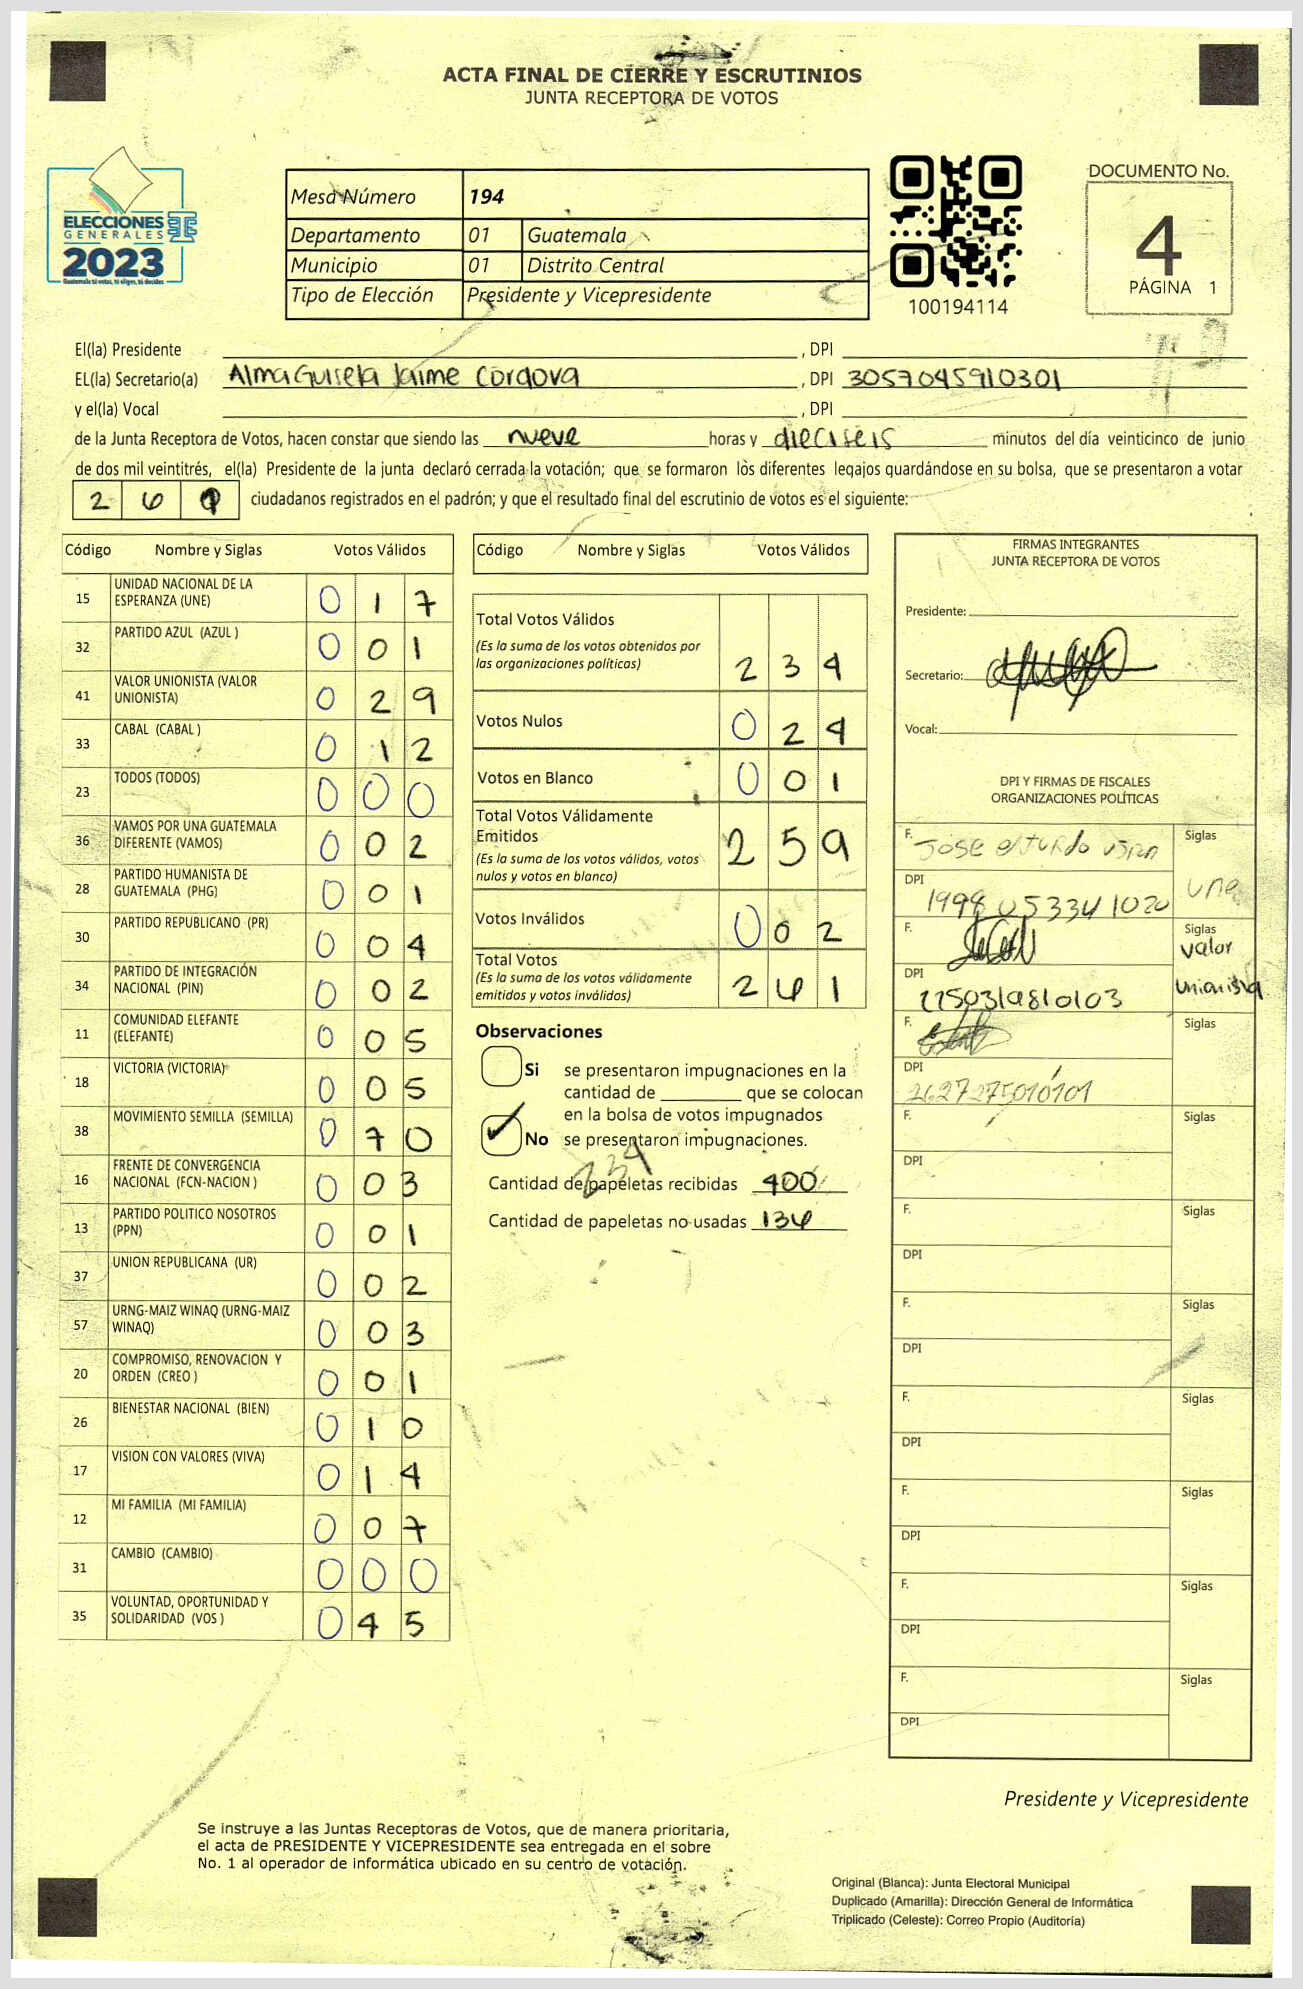 ACTA FINAL DE CIERRE Y ESCRUTINIOS
JUNTA RECEPTORA DE VOTOS
ELECCIONES
GENERALES
2023
Guatemala tú votas, tú eliges, tú decides
Mesa Número 194
Departamento 01 Guatemala
Municipio 01 Distrito Central
Tipo de Elección Presidente y Vicepresidente
100194114
DOCUMENTO No.
4
PÁGINA 1
El(la) Presidente , DPI
EL(la) Secretario(a) Alma Guisela Jaime Cordova , DPI 3057045910301
y el(la) Vocal , DPI
de la Junta Receptora de Votos, hacen constar que siendo las nueve horas y dieciseis minutos del día veinticinco de junio
de dos mil veintitrés, el(la) Presidente de la junta declaró cerrada la votación; que se formaron los diferentes legajos quardándose en su bolsa, que se presentaron a votar
2 6 1 ciudadanos registrados en el padrón; y que el resultado final del escrutinio de votos es el siguiente:
Código Nombre y Siglas Votos Válidos
15 UNIDAD NACIONAL DE LA ESPERANZA (UNE) 0 1 7
32 PARTIDO AZUL (AZUL ) 0 0 1
41 VALOR UNIONISTA (VALOR UNIONISTA) 0 2 9
33 CABAL (CABAL ) 0 1 2
23 TODOS (TODOS) 0 0 0
36 VAMOS POR UNA GUATEMALA DIFERENTE (VAMOS) 0 0 2
28 PARTIDO HUMANISTA DE GUATEMALA (PHG) 0 0 1
30 PARTIDO REPUBLICANO (PR) 0 0 4
34 PARTIDO DE INTEGRACIÓN NACIONAL (PIN) 0 0 2
11 COMUNIDAD ELEFANTE (ELEFANTE) 0 0 5
18 VICTORIA (VICTORIA) 0 0 5
38 MOVIMIENTO SEMILLA (SEMILLA) 0 7 0
16 FRENTE DE CONVERGENCIA NACIONAL (FCN-NACION ) 0 0 3
13 PARTIDO POLITICO NOSOTROS (PPN) 0 0 1
37 UNION REPUBLICANA (UR) 0 0 2
57 URNG-MAIZ WINAQ (URNG-MAIZ WINAQ) 0 0 3
20 COMPROMISO, RENOVACION Y ORDEN (CREO ) 0 0 1
26 BIENESTAR NACIONAL (BIEN) 0 1 0
17 VISION CON VALORES (VIVA) 0 1 4
12 MI FAMILIA (MI FAMILIA) 0 0 7
31 CAMBIO (CAMBIO) 0 0 0
35 VOLUNTAD, OPORTUNIDAD Y SOLIDARIDAD (VOS ) 0 4 5
Código Nombre y Siglas Votos Válidos
Total Votos Válidos
(Es la suma de los votos obtenidos por
las organizaciones políticas) 2 3 4
Votos Nulos 0 2 4
Votos en Blanco 0 0 1
Total Votos Válidamente
Emitidos
(Es la suma de los votos válidos, votos
nulos y votos en blanco) 2 5 9
Votos Inválidos 0 0 2
Total Votos
(Es la suma de los votos válidamente
emitidos y votos inválidos) 2 6 1
Observaciones
Si se presentaron impugnaciones en la
cantidad de que se colocan
en la bolsa de votos impugnados
No se presentaron impugnaciones.
234
Cantidad de papeletas recibidas 400
Cantidad de papeletas no usadas 136
FIRMAS INTEGRANTES
JUNTA RECEPTORA DE VOTOS
Presidente:
Secretario:
Vocal:
DPI Y FIRMAS DE FISCALES
ORGANIZACIONES POLÍTICAS
F. Jose Siglas
DPI 1998 05334 1020 une
F. Siglas valor
DPI 2250319810103 unionista
F. Siglas
DPI 2627275010101
F. Siglas
DPI
F. Siglas
DPI
F. Siglas
DPI
F. Siglas
DPI
F. Siglas
DPI
F. Siglas
DPI
F. Siglas
DPI
Presidente y Vicepresidente
Se instruye a las Juntas Receptoras de Votos, que de manera prioritaria,
el acta de PRESIDENTE Y VICEPRESIDENTE sea entregada en el sobre
No. 1 al operador de informática ubicado en su centro de votación.
Original (Blanca): Junta Electoral Municipal
Duplicado (Amarilla): Dirección General de Informática
Triplicado (Celeste): Correo Propio (Auditoría)